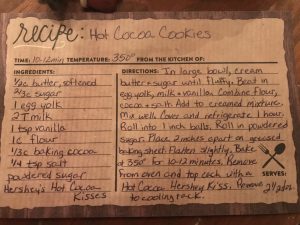 recipe: Hot Cocoa Cookies
TIME: 10-12min TEMPERATURE: 350° FROM THE KITCHEN OF:
INGREDIENTS:
1/2c butter, softened
2/3c sugar
1 egg yolk
2T milk
1 tsp vanilla
1c flour
1/3c baking cocoa
1/4 tsp salt
powdered sugar
Hershey's Hot Cocoa
Kisses
DIRECTIONS: In large bowl, cream
butter + sugar until fluffy. Beat in
egg yolk, milk + vanilla. Combine flour,
cocoa + salt. Add to creamed mixture.
Mix well. Cover and refrigerate 1 hour.
Roll into 1 inch balls. Roll in powdered
sugar. Place 2 inches apart on greased
baking sheet. Flatten slightly. Bake
at 350° for 10-12 minutes. Remove
from oven and top each with a
Hot Cocoa Hershey Kiss. Remove
to cooling rack.
SERVES:
2 1/2 doz